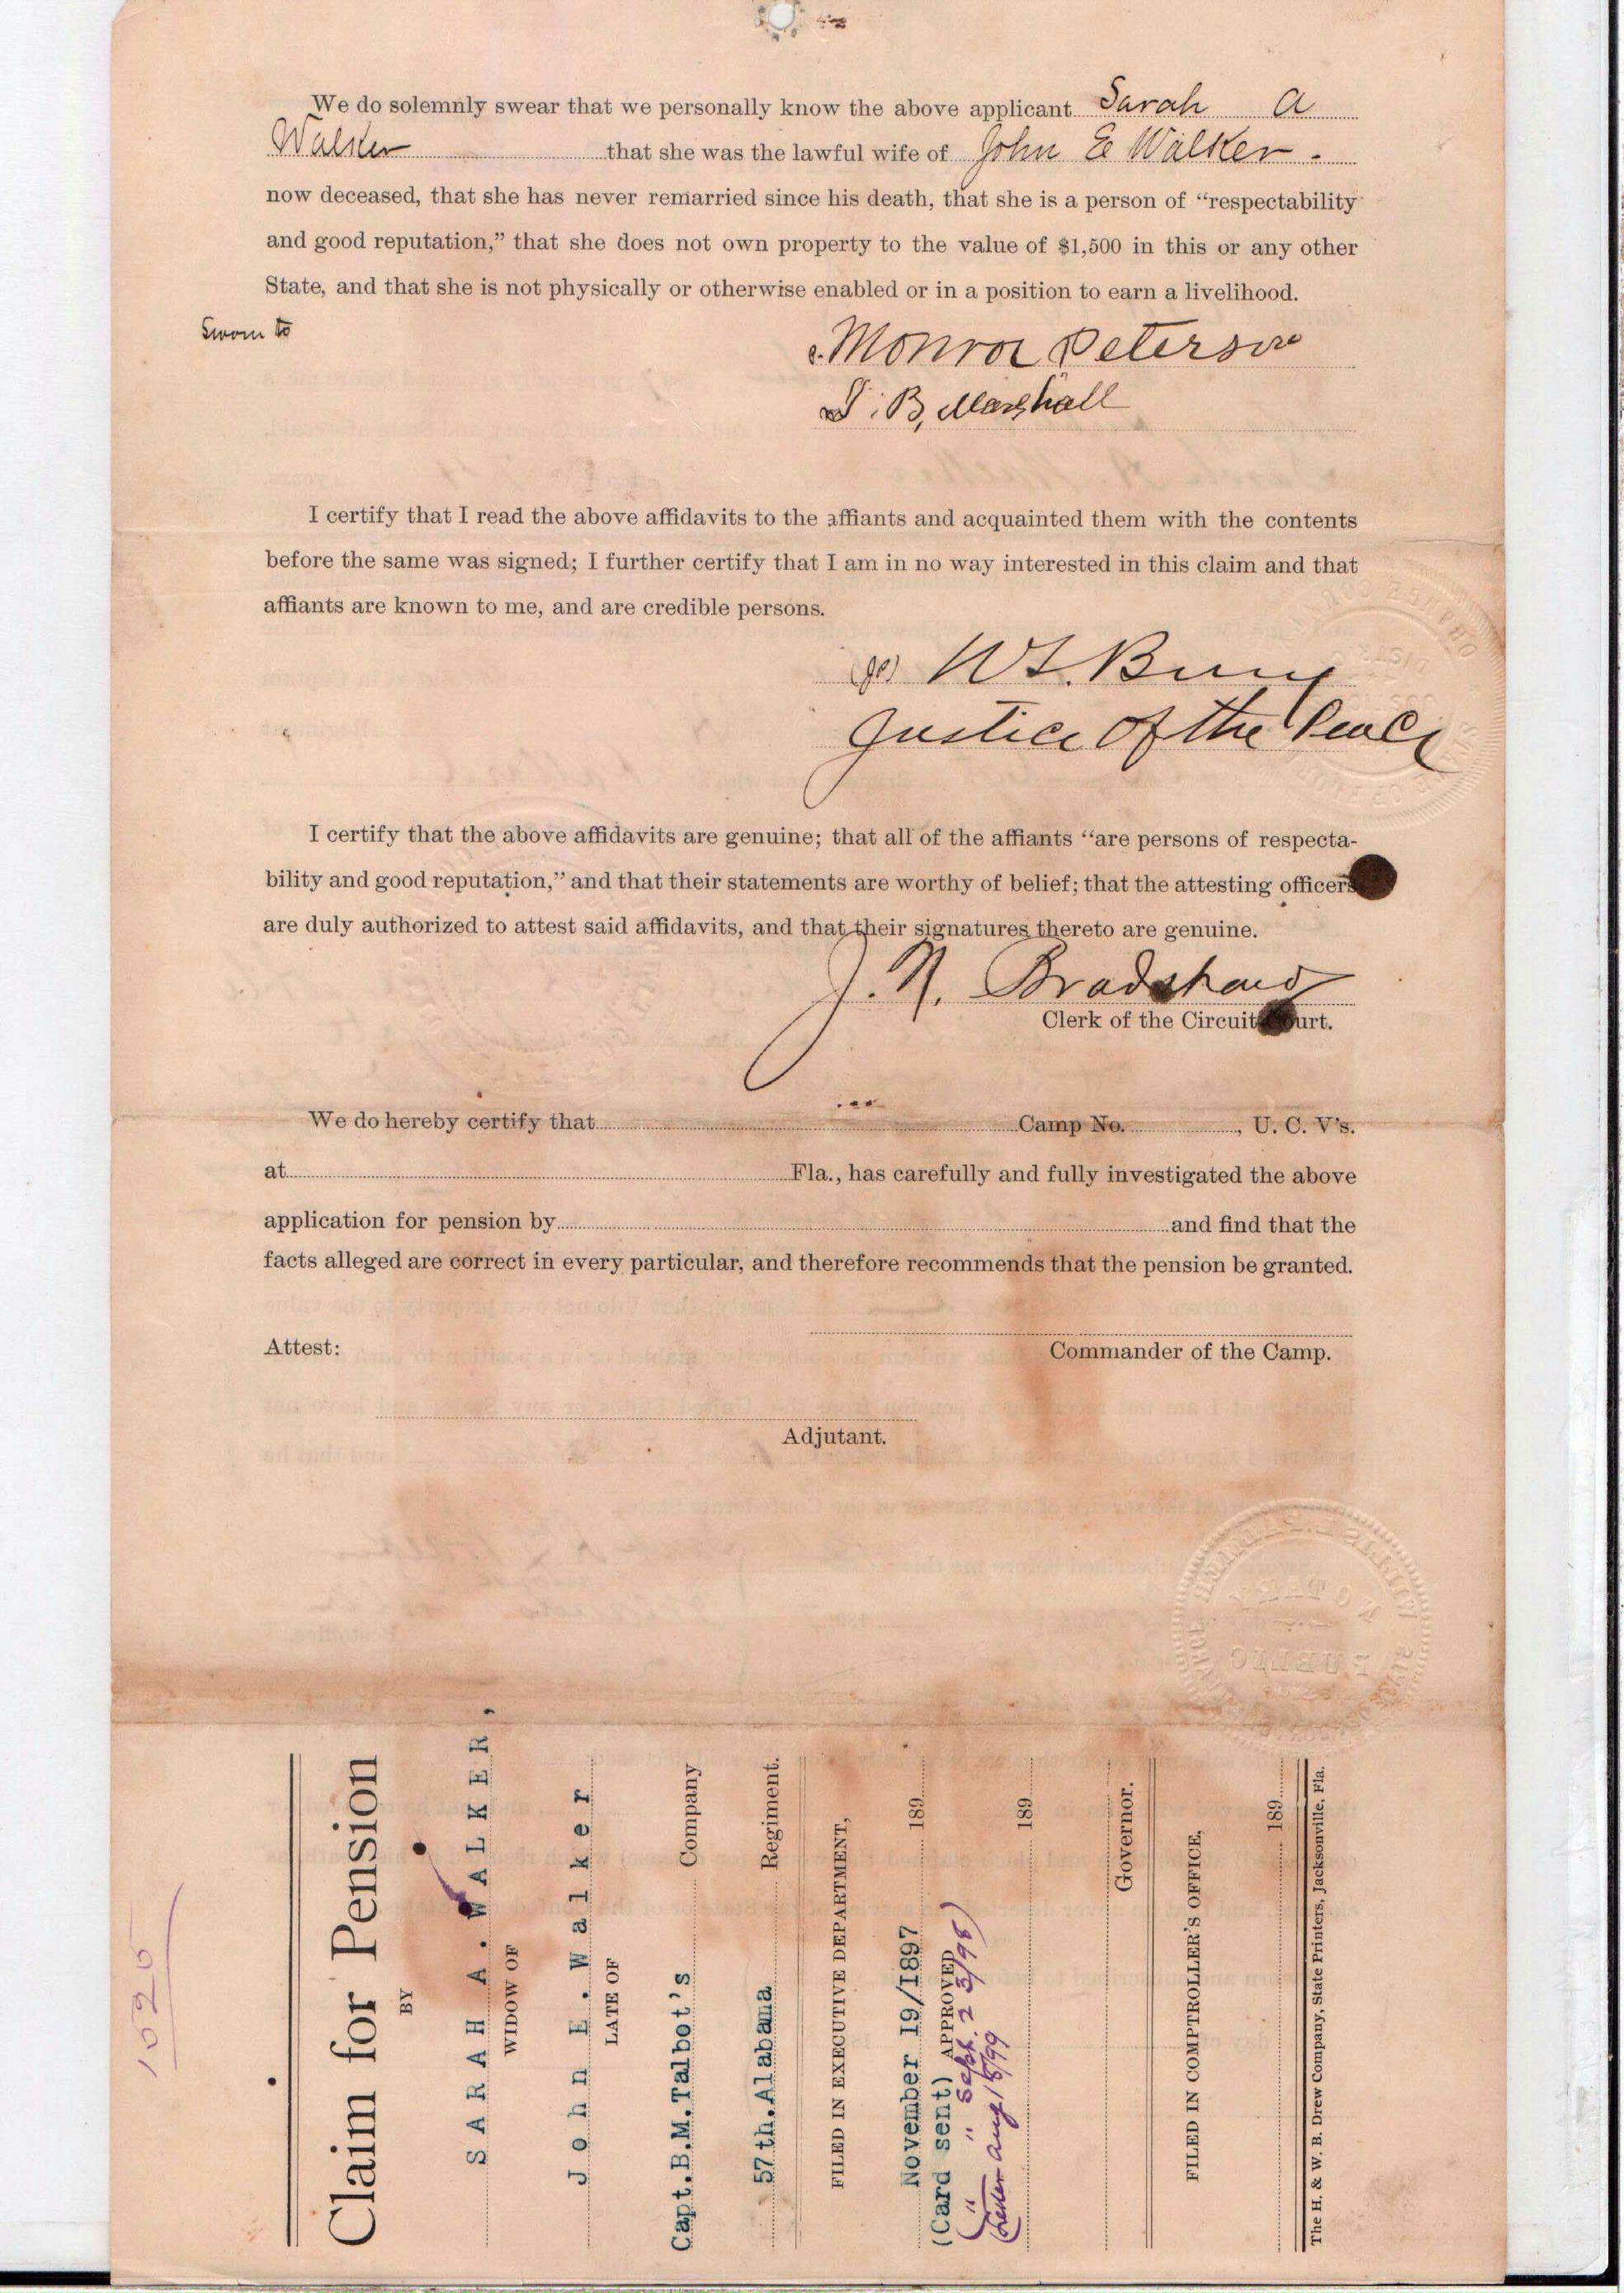 We do solemnly swear that we personally know the above applicant Sarah A
Walker that she was the lawful wife of John E Walker.
now deceased, that she has never remarried since his death, that she is a person of “respectability
and good reputation,” that she does not own property to the value of $1,500 in this or any other
State, and that she is not physically or otherwise enabled or in a position to earn a livelihood.
Sworn to
Monroe Peterson
B, Marshall
I certify that I read the above affidavits to the affiants and acquainted them with the contents
before the same was signed; I further certify that I am in no way interested in this claim and that
affiants are known to me, and are credible persons.
Justice of the Peace
I certify that the above affidavits are genuine; that all of the affiants “are persons of respecta-
bility and good reputation,” and that their statements are worthy of belief; that the attesting officers
are duly authorized to attest said affidavits, and that their signatures thereto are genuine.
J. N. Bradshaw
Clerk of the Circuit Court.
We do hereby certify that Camp No. , U. C. V's.
at Fla., has carefully and fully investigated the above
application for pension by and find that the
facts alleged are correct in every particular, and therefore recommends that the pension be granted.
Attest:
Commander of the Camp.
Adjutant.
NOTARY
PUBLIC
1020
Claim for Pension
BY
SARAH A. WALKER,
WIDOW OF
John E. Walker
LATE OF
Capt.B.M.Talbot's Company
57th.Alabama Regiment.
FILED IN EXECUTIVE DEPARTMENT,
November 19/1897 189
(Card sent) APPROVED
( " " Sept. 23/98)
(Letter Aug 18/99 189
Governor.
FILED IN COMPTROLLER'S OFFICE,
189
The H. & W. B. Drew Company, State Printers, Jacksonville, Fla.